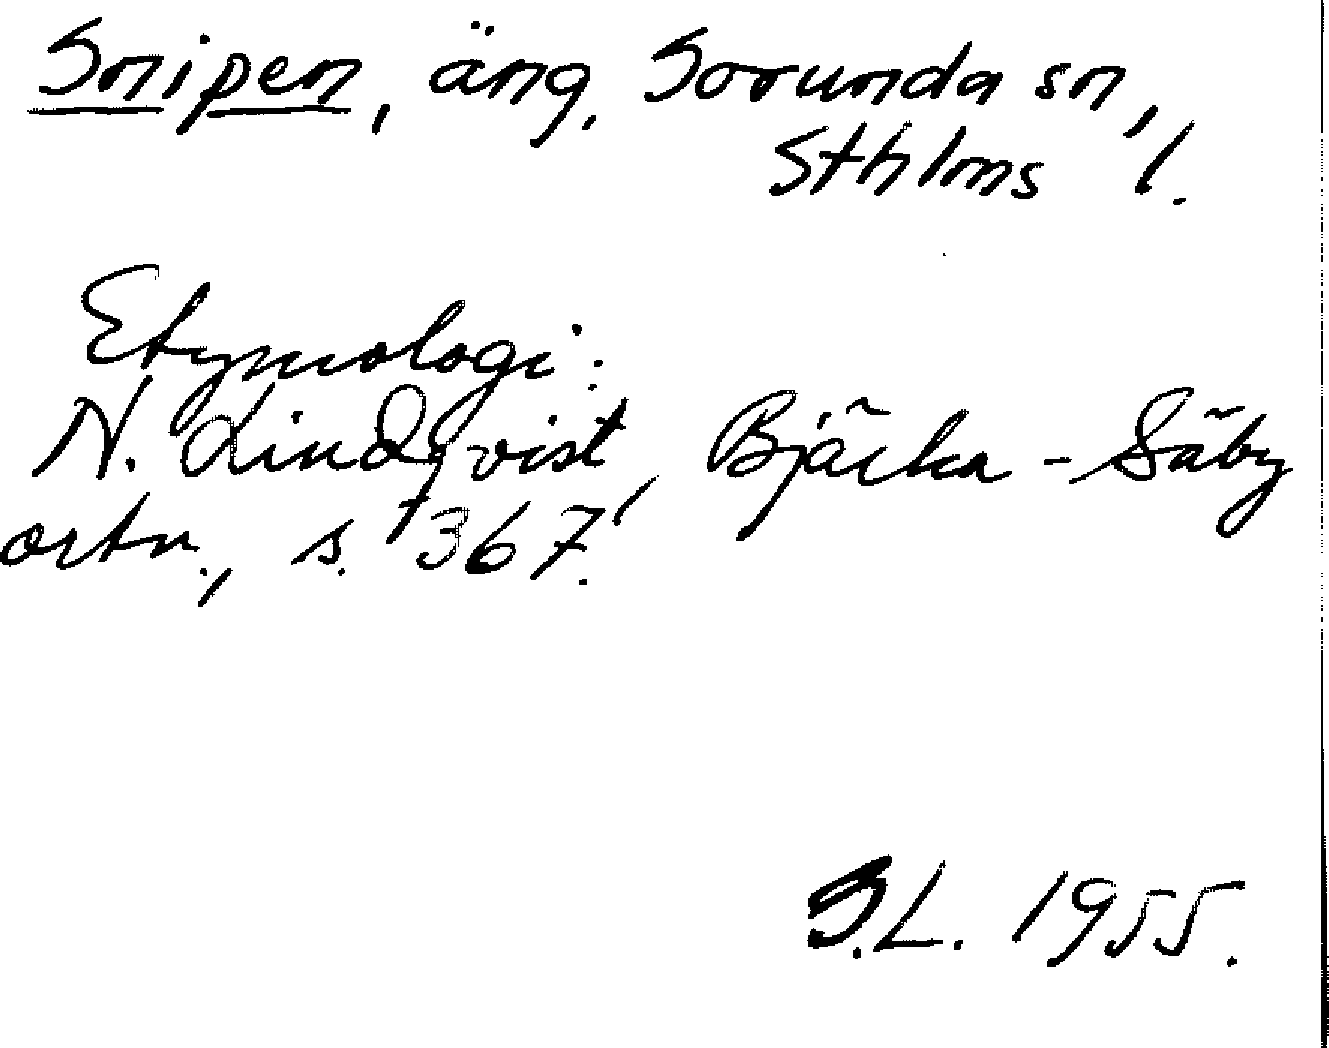 Snipen, äng, Sorunda sn,
Sthlms l.
Etymologi:
N. Lindqvist, Bjärka-Säby
ortn., s. 367.
S.L. 1955.